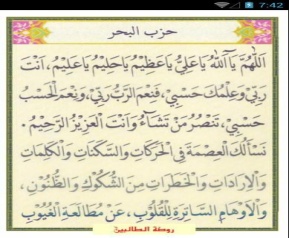 7:42
حزب البحر
اَللّٰهُمَّ يَا اَللهُ يَا عَلِيُّ يَا عَظِيْمُ يَا حَلِيْمُ يَا عَلِيْمُ، اَنْتَ
رَبِّيْ وَعِلْمُكَ حَسْبِيْ، فَنِعْمَ الرَّبُّ رَبِّيْ، وَنِعْمَ الْحَسْبُ
حَسْبِيْ، تَنْصُرُ مَنْ تَشَآءُ وَاَنْتَ الْعَزِيْزُ الرَّحِيْمُ.
نَسْأَلُكَ الْعِصْمَةَ فِي الْحَرَكَاتِ وَالسَّكَنَاتِ وَالْكَلِمَاتِ
وَالْاِرَادَاتِ وَالْخَطَرَاتِ مِنَ الشُّكُوْكِ وَالظُّنُوْنِ،
وَالْاَوْهَامِ السَّاتِرَةِ لِلْقُلُوْبِ، عَنْ مُطَالَعَةِ الْغُيُوْبِ
روضة الطالبين